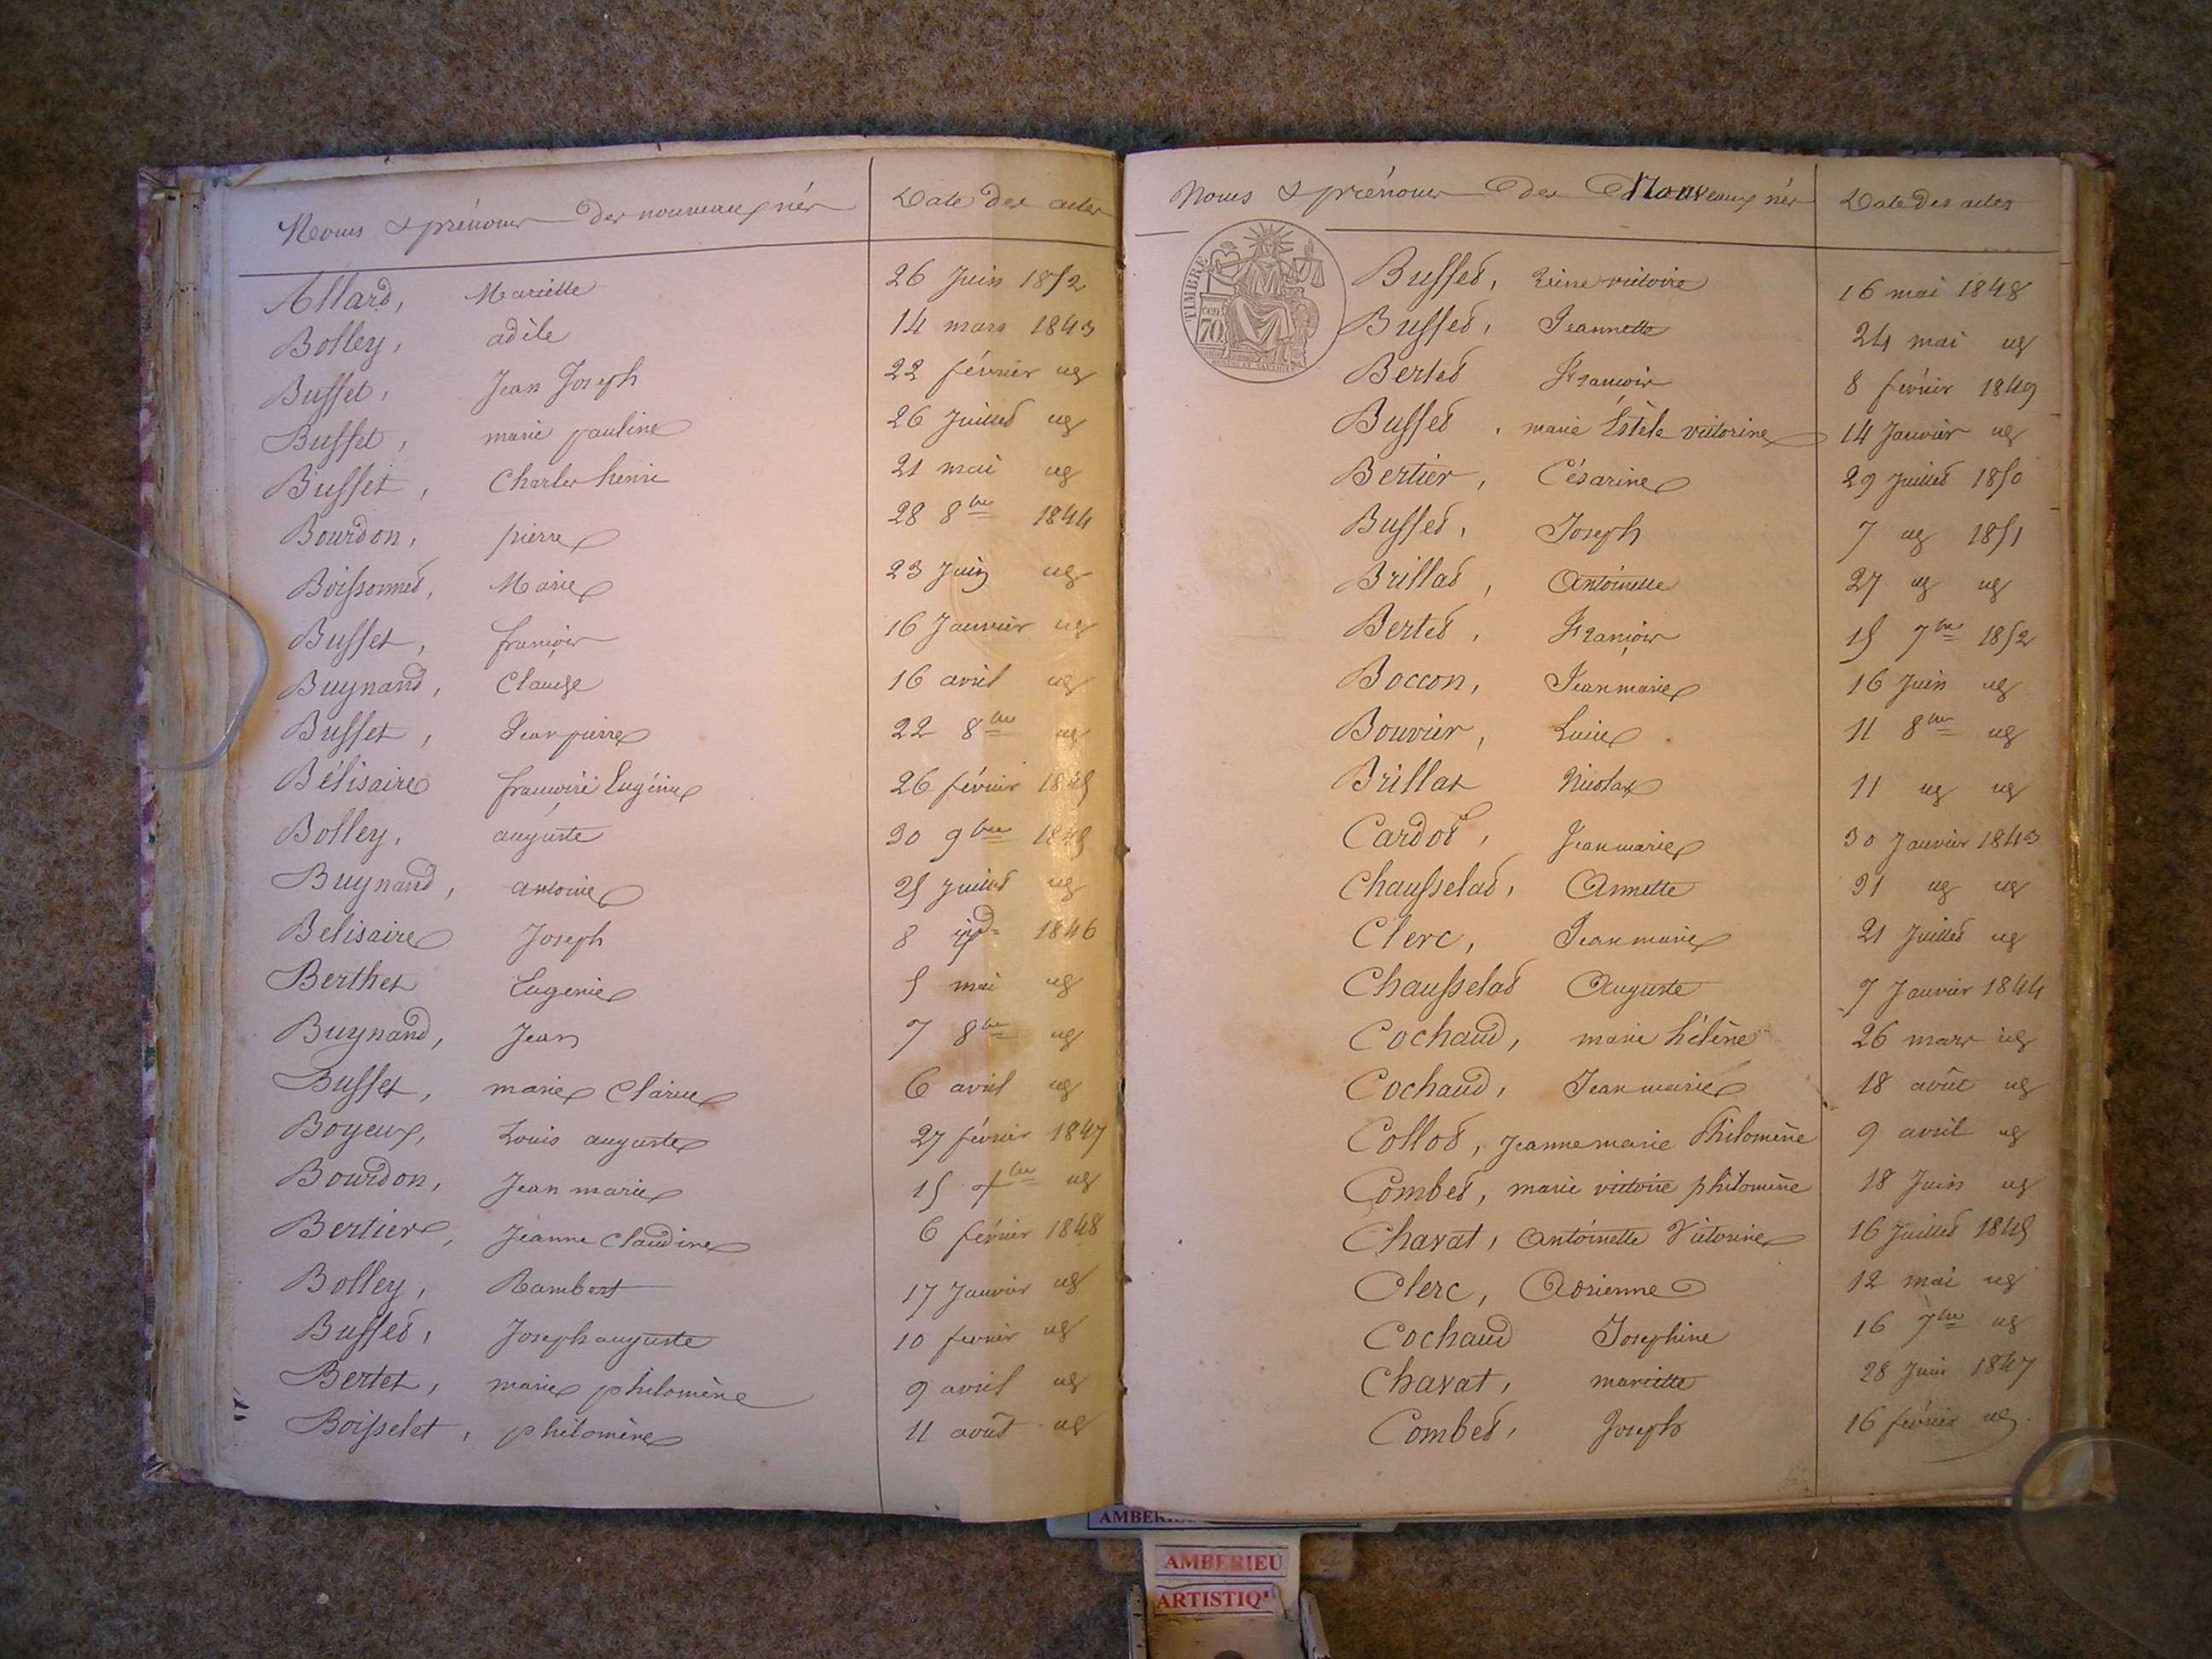 Noms & prénoms des nouveaux nés Date des actes
Allard, Mariette 26 Juin 1852
Bolley, adèle 14 mars 1843
Busset, Jean Joseph 22 février ug
Busset, marie pauline 26 Juillet ug
Busset, Charles henri 21 mai ug
Bourdon, pierre 28 8bre 1844
Boissonnet, Marie 23 Juin ug
Busset, françois 16 Janvier ug
Buynand, Claude 16 avril ug
Busset, Jean pierre 22 8bre ug
Bélisaire françoise Eugénie 26 février 1845
Bolley, auguste 30 9bre 1845
Buynand, antoine 25 Juillet ug
Belisaire Joseph 8 1846
Berthet Eugenie 5 mai ug
Buynand, Jean 7 8bre ug
Busset, marie Clarice 6 avril ug
Boyeux, Louis auguste 27 février 1847
Bourdon, Jean marie 15 7bre ug
Bertier, Jeanne Claudine 6 février 1848
Bolley, Rambert 17 Janvier ug
Busset, Joseph auguste 10 fevrier ug
Bertet, marie philomène 9 avril ug
Boisselet, philomène 11 août ug
Noms & prénoms des Nouveaux nés Date des actes
TIMBRE
70
Busset, reine victoire 16 mai 1848
Busset, Jeannette 24 mai ug
Bertet François 8 février 1849
Busset, marie Estèle victorine 14 Janvier ug
Bertier, Césarine 29 Juillet 1850
Busset, Joseph 7 ug 1851
Brillat, Antoinette 27 ug ug
Bertet, François 15 7bre 1852
Boccon, Jean marie 16 Juin ug
Bouvier, Lucie 11 8bre ug
Brillat Nicolas 11 ug ug
Cardot, Jean marie 30 Janvier 1843
Chausselat, Annette 31 ug ug
Clerc, Jean marie 21 Juillet ug
Chausselat Auguste 7 Janvier 1844
Cochaud, marie hélène 26 mars ug
Cochaud, Jean marie 18 août ug
Collot, Jeanne marie Philomène 9 avril ug
Combet, marie victoire philomène 18 Juin ug
Chavat, Antoinette Victorine 16 Juillet 1845
Clerc, Adrienne 12 mai ug
Cochaud Josephine 16 7bre ug
Chavat, mariette 28 Juin 1847
Combet, Joseph 16 février ug
AMBERIEU
ARTISTIQ